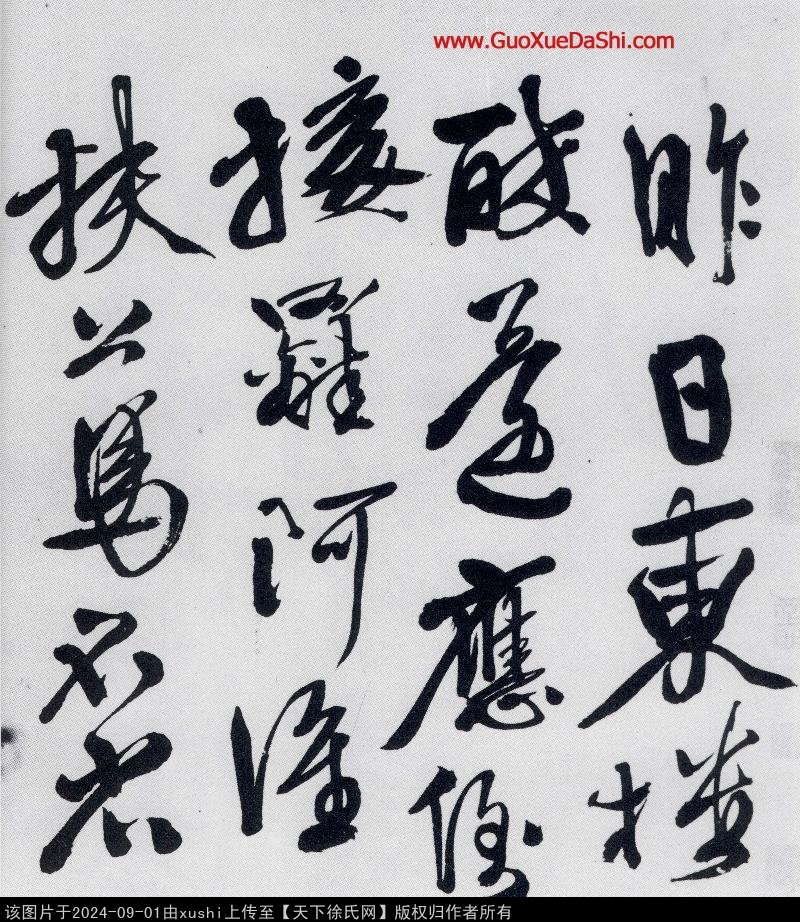 www.GuoXueDaShi.com
昨日東樓
醉還應倒
接䍦阿誰
扶上馬不省
该图片于2024-09-01由xushi上传至【天下徐氏网】版权归作者所有